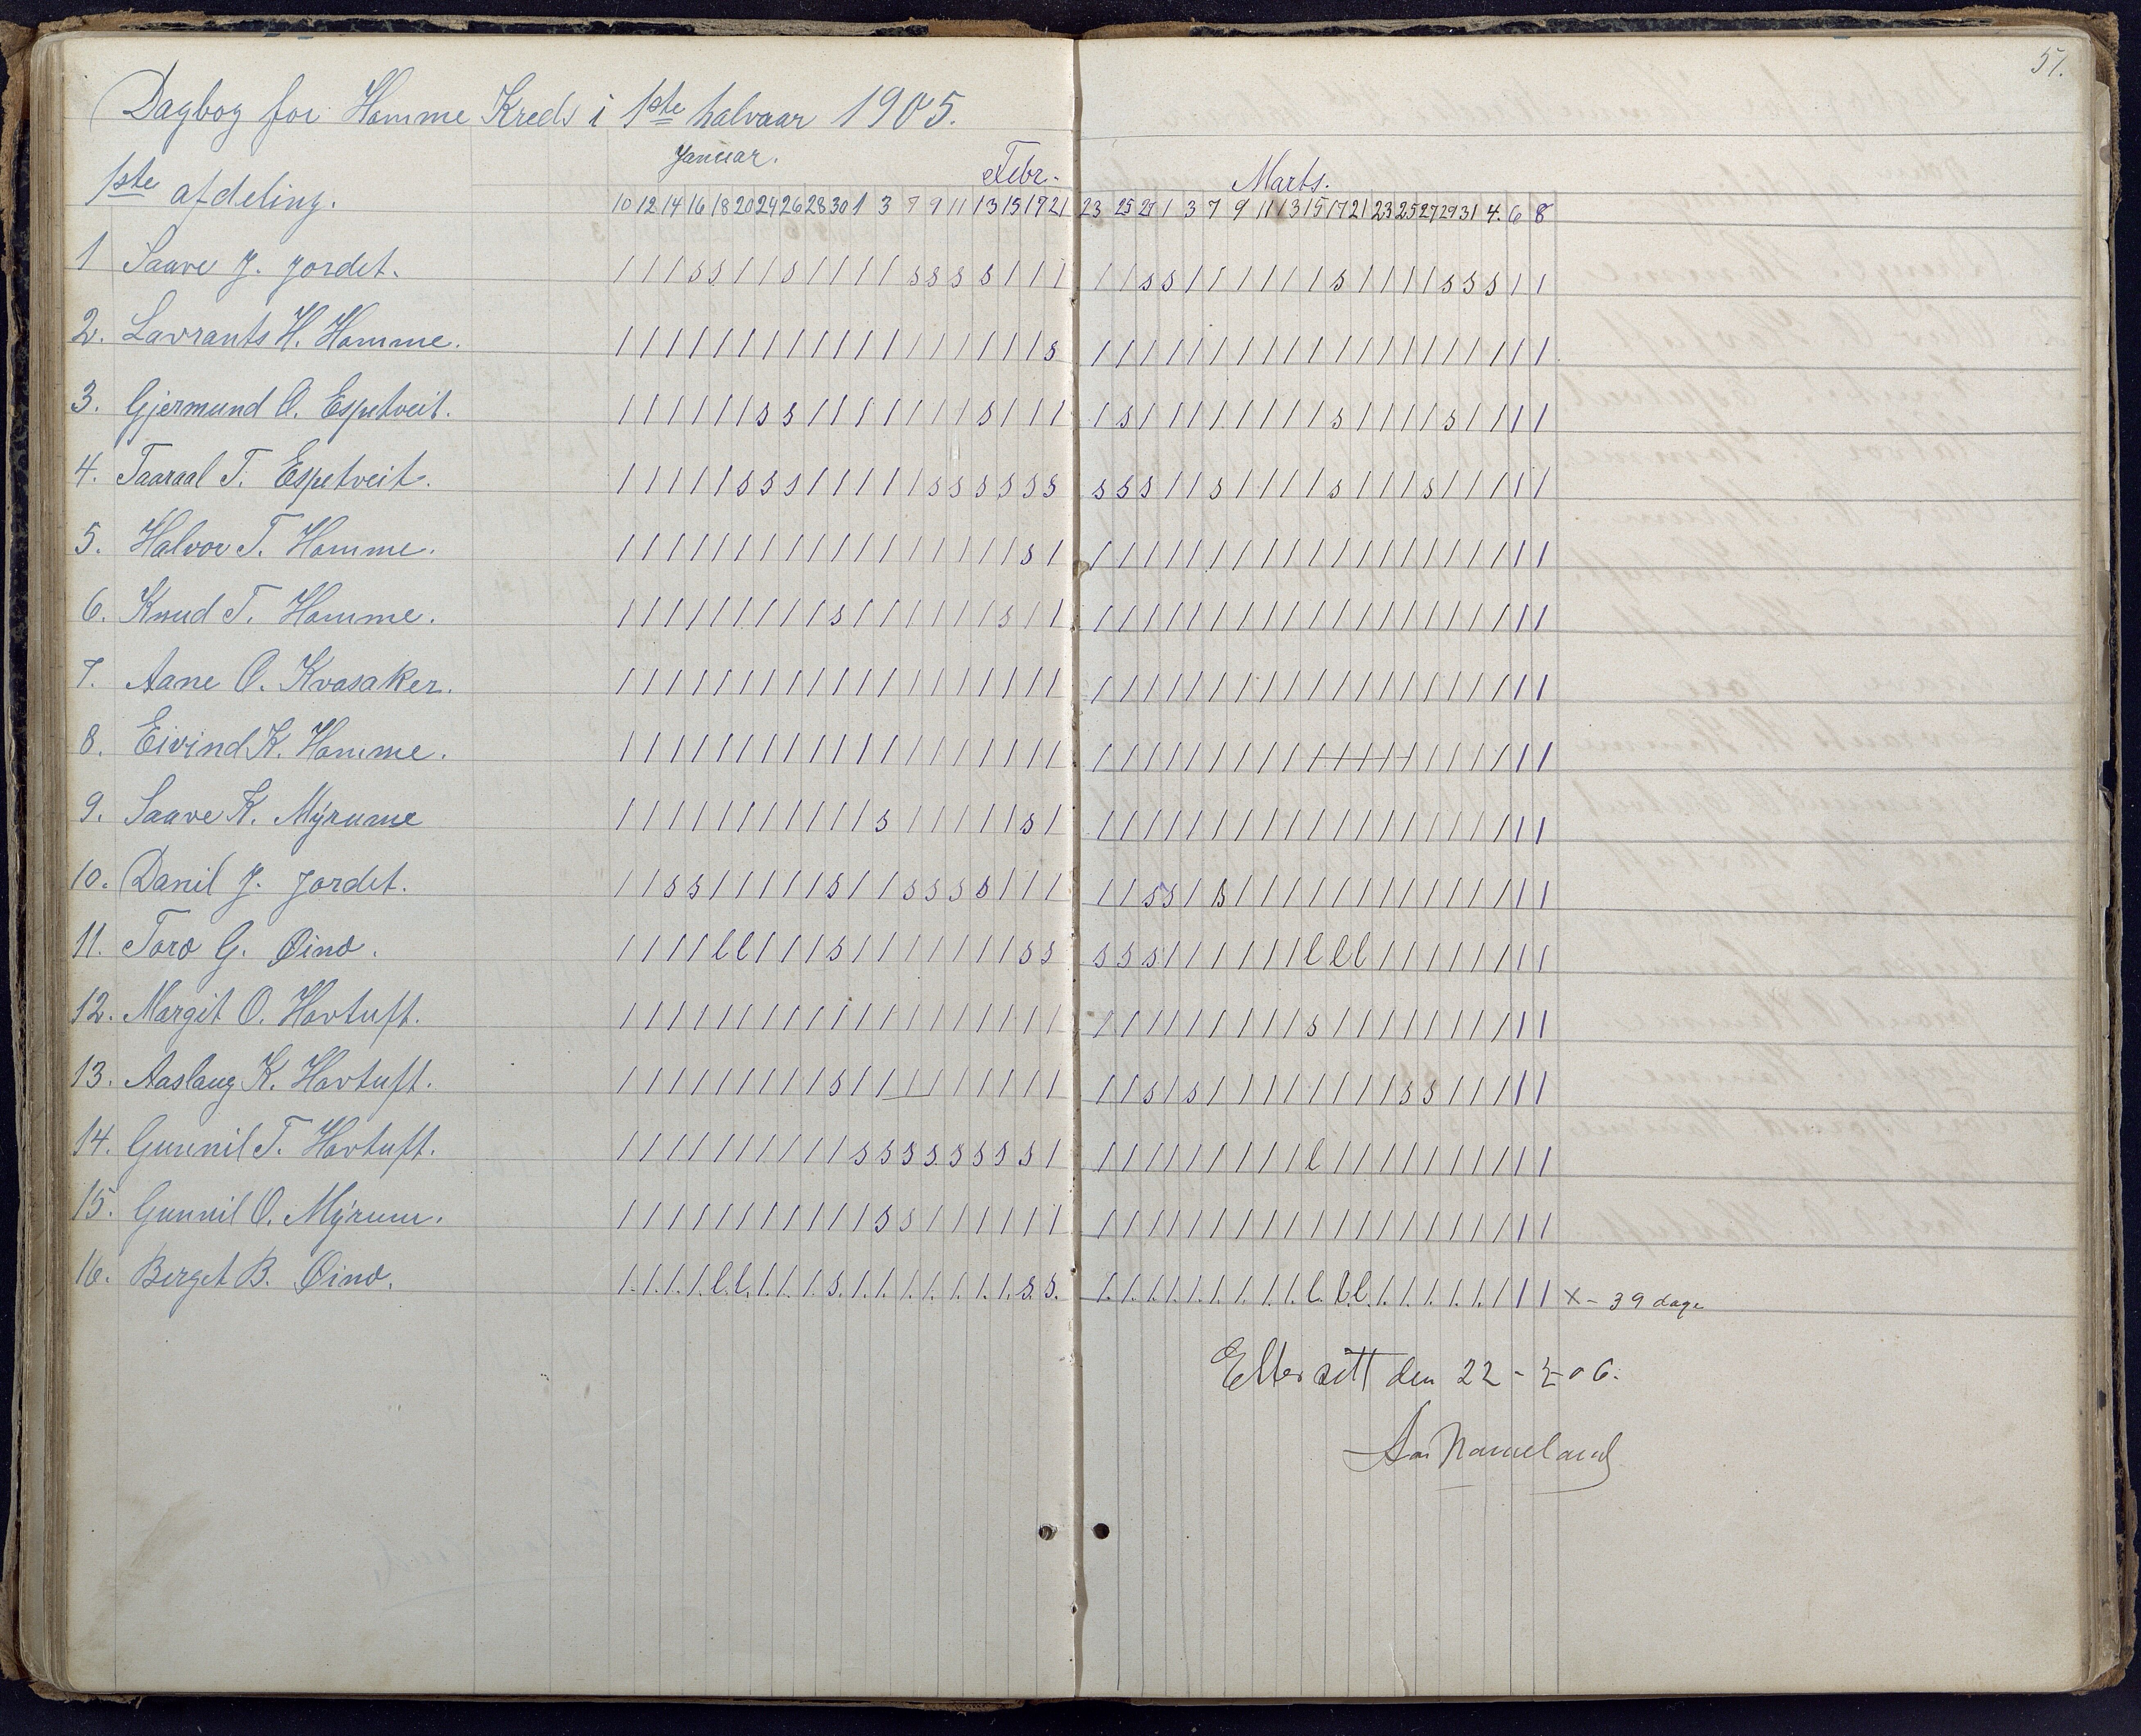 51.
Dagbog for Homme Kreds i 1ste halvaar 1905.
Januar. Febr. Marts.
1ste afdeling. 10 12 14 16 18 20 24 26 28 30 1 3 7 9 11 13 15 17 21 23 25 27 1 3 7 9 11 13 15 17 21 23 25 27 29 31 4. 6 8
1 Saave J. Jordet. / / / s s / / s / / / / s s s s / / / / / s s / / / / / / s / / / / s s s / /
2. Lavrants H. Homme. / / / / / / / / / / / / / / / / / / s / / / / / / / / / / / / / / / / / / / /
3. Gjermund O. Espetveit. / / / / / / s s / / / / / / / s / / / / s / / / / / / / / s / / / / s / / / /
4. Taaraal T. Espetveit. / / / / / s s s / / / / / s s s s s s s s s / / s / / / / s / / / s / / / / /
5. Halvor T. Homme. / / / / / / / / / / / / / / / / / s / / / / / / / / / / / / / / / / / / / / /
6. Knud T. Homme. / / / / / / / / / s / / / / / / s / / / / / / / / / / / / / / / / / / / / / /
7. Aane O. Kvasaker. / / / / / / / / / / / / / / / / / / / / / / / / / / / / / / / / / / / / / / /
8. Eivind K. Homme. / / / / / / / / / / / / / / / / / / / / / / / / / / / / / / / / / / / / / / /
9. Saave K. Myrume / / / / / / / / / / / s / / / / / s / / / / / / / / / / / / / / / / / / / / /
10. Danil J. Jordet. / / s s / / / / / s / / s s s s / / / / / s s / s / / / / / / / / / / / / / /
11. Toro G. Øino. / / / / l l / / / s / / / / / / / s s s s s / / / / / / l l l / / / / / / / /
12. Margit O. Hovtuft. / / / / / / / / / / / / / / / / / / / / / / / / / / / / s / / / / / / / / / /
13. Aaslaug K. Hovtuft. / / / / / / / / / s / / / / / / / / / / / s / s / / / / / / / / s s / / / / /
14. Gunnil T. Hovtuft. / / / / / / / / / / s s s s s s s s / / / / / / / / / / l / / / / / / / / / /
15. Gunnil O. Myrum. / / / / / / / / / / / s s / / / / / / / / / / / / / / / / / / / / / / / / / /
16. Berget B. Øino. / / / / l l / / / s / / / / / / / s s. / / / / / / / / / l l l / / / / / / / / x - 39 dage
Ettersett den 22 - - 06.